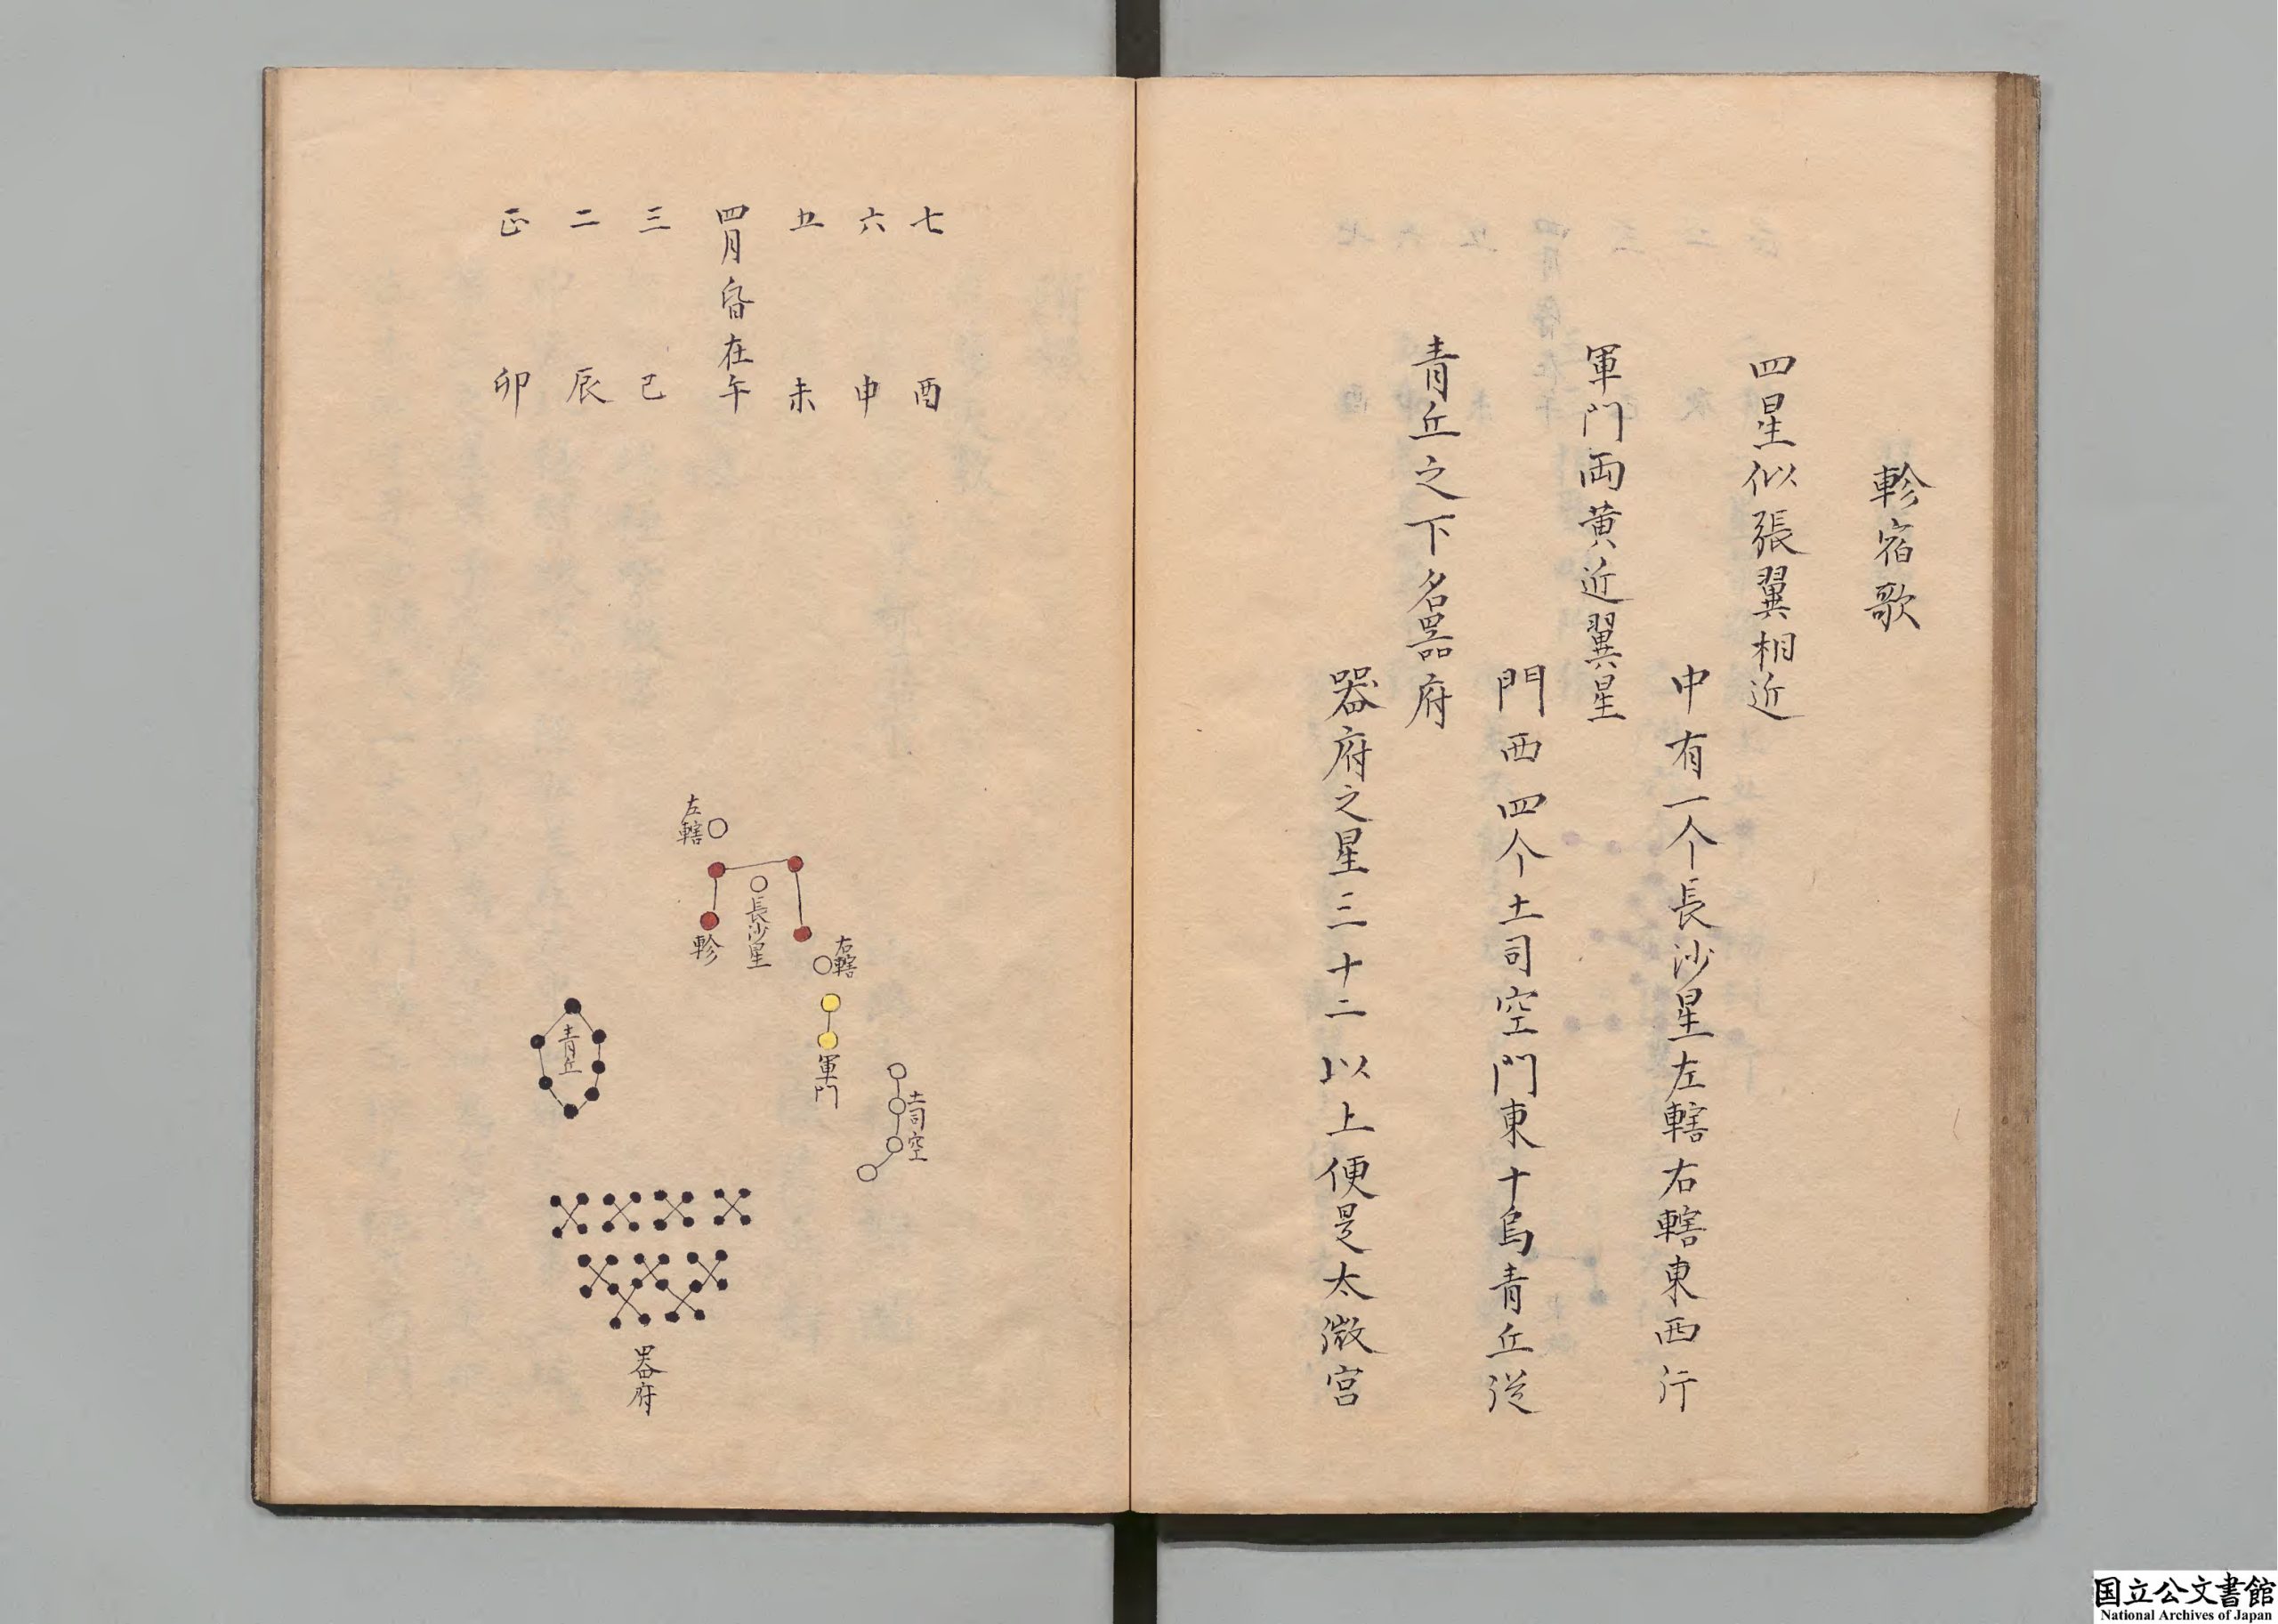 軫宿歌
四星似張翼相近
中有一个長沙星左轄右轄東西行
軍門両黄近翼星
門西四个土司空門東十烏青丘従
青丘之下名噐府
器府之星三十二以上便是太微宮
七 酉
六 申
五 未
四月昏在午
三 巳
二 辰
正 卯
左轄
長沙星
軫
右轄
軍門
土司空
青丘
器府
国立公文書館
National Archives of Japan